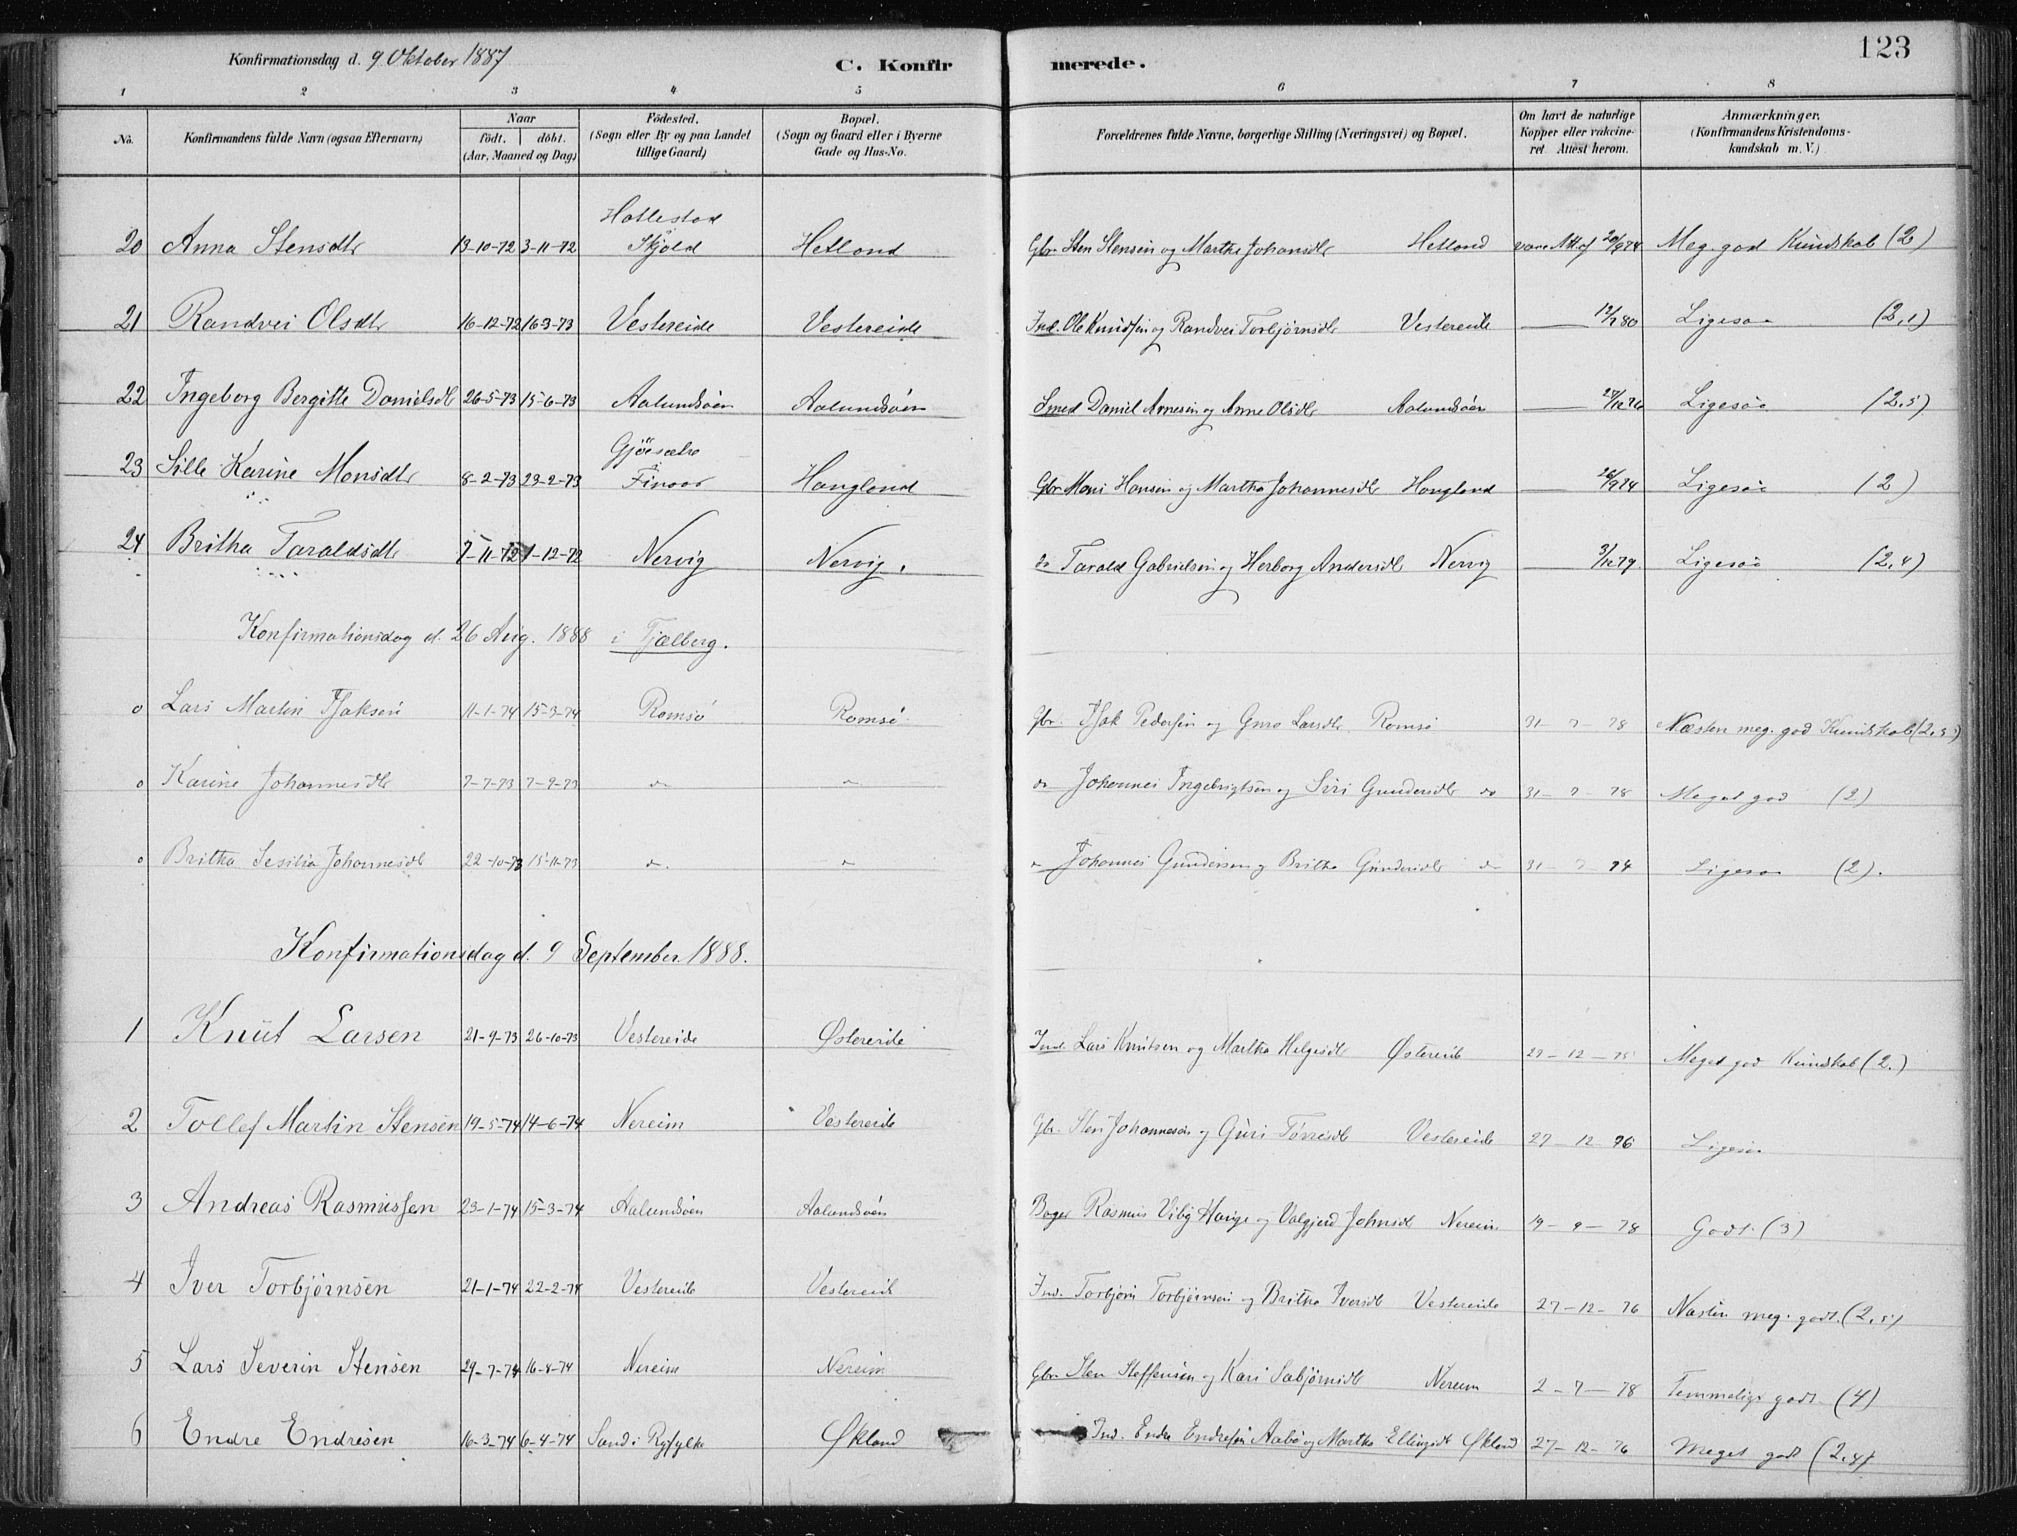 Konfirmationsdag d. 9 Oktober 1887 C. Konfirmerede. 123
1 2 3 4 5 6 7 8
No. Konfirmandens fulde Navn (ogsaa Efternavn) Naar födt. döbt. (Aar, Maaned og Dag) Födested. (Sogn eller By og paa Landet tillige Gaard) Bopæl. (Sogn og Gaard eller i Byerne Gade og Hus-No. Forældrenes fulde Navne, borgerlige Stilling (Næringsvei) og Bopæl. Om havt de naturlige Kopper eller vakcineret Attest herom. Anmærkninger. (Konfirmandens Kristendomskundskab m. V.)
20 Anna Stensdtr 13-10-72 3-11-72 Skjold Hetland Gbr. Sten Stensen og Martha Johansdtr Hetland Meg. god Kundskab (2)
21 Randvei Olsdtr 16-12-72 16-3-73 Vestereide Vestereide Ind. Ole Knudsen og Randvei Torbjørnsdtr Vestereide Ligesaa (2,1)
22 Ingeborg Bergitte Danielsdtr 26-5-73 15-6-73 Aalundsøen Aalundsøen Smed Daniel Arnesen og Anne Olsdtr Aalundsøen Ligesaa (2,5)
23 Sille Karine Monsdtr 8-2-73 23-2-73 Haugland Gbr. Mons Hansen og Martha Johannesdtr Haugland Ligesaa (2)
24 Britha Taraldsdtr 7-11-72 1-12-72 Nervig Nervig. do Tarald Gabrielsen og Herborg Andersdtr Nervig Ligesaa (2,4)
Konfirmationsdag d. 26 Aug. 1888 i Tjælberg.
o Lars Martin Isaksen 11-1-74 15-3-74 Romsø Romsø Gbr. Isak Pedersen og Guro Larsdtr. Romsø 31-7-78 Næsten meg. god Kundskab (2,5)
o Karine Johannesdtr 7-7-73 7-9-73 do do do Johannes Ingebrigtsen og Siri Gundersdtr do 31-7-78 Meget god (2)
o Britha Sesilia Johannesdtr 22-10-73 15-11-73 do do do Johannes Gundersen og Britha Gundersdtr do 31-7-74 Ligesaa (2).
Konfirmationsdag d. 9 September 1888.
1 Knut Larsen 21-9-73 26-10-73 Vestereide Østereide Ind. Lars Knutsen og Martha Helgesdtr Østereide 27-12-75 Meget god Kundskab (2.)
2 Tollef Martin Stensen 19-5-74 14-6-74 Nereim Vestereide Gbr. Sten Johannesen og Guri Tørresdtr Vestereide 27-12-76 Ligesaa
3 Andreas Rasmussen 23-1-74 15-3-74 Aalundsøen Aalundsøen Bager Rasmus Viby Hauge og Valgjerd Johnsdtr Nereim 19-9-78 Godt. (3)
4 Iver Torbjørnsen 21-1-74 22-2-74 Vestereide Vestereide Ind. Torbjørn Torbjørnsen og Britha Iversdtr Vestereide 27-12-76 Næsten meg. godt. (2,5)
5 Lars Severin Stensen 29-7-74 16-8-74 Nereim Nereim Gbr. Sten Steffensen og Kari Sabjørnsdtr Nereim 2-7-78 Temmelige godt. (4)
6 Endre Endresen 16-3-74 6-4-74 Sand i Ryfylke Økland Ind. Endre Endresen Aabø og Martha Ellingsdt Økland 27-12-76 Meget godt (2,4)